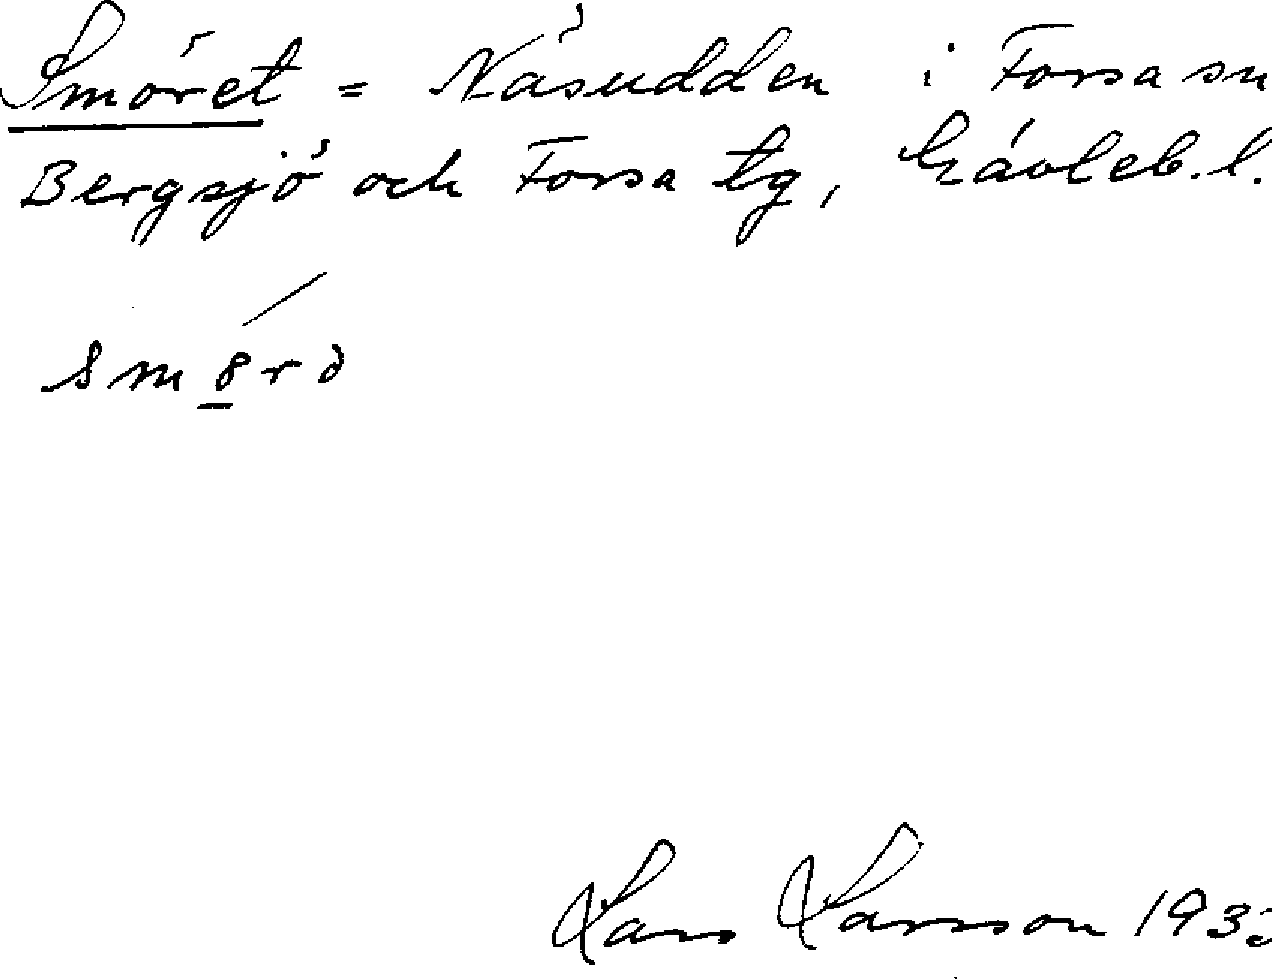 Smöret = Näsudden i Forsa sn
Bergsjö och Forsa tg, Gävleb. l.
smörə
Lars Larsson 193